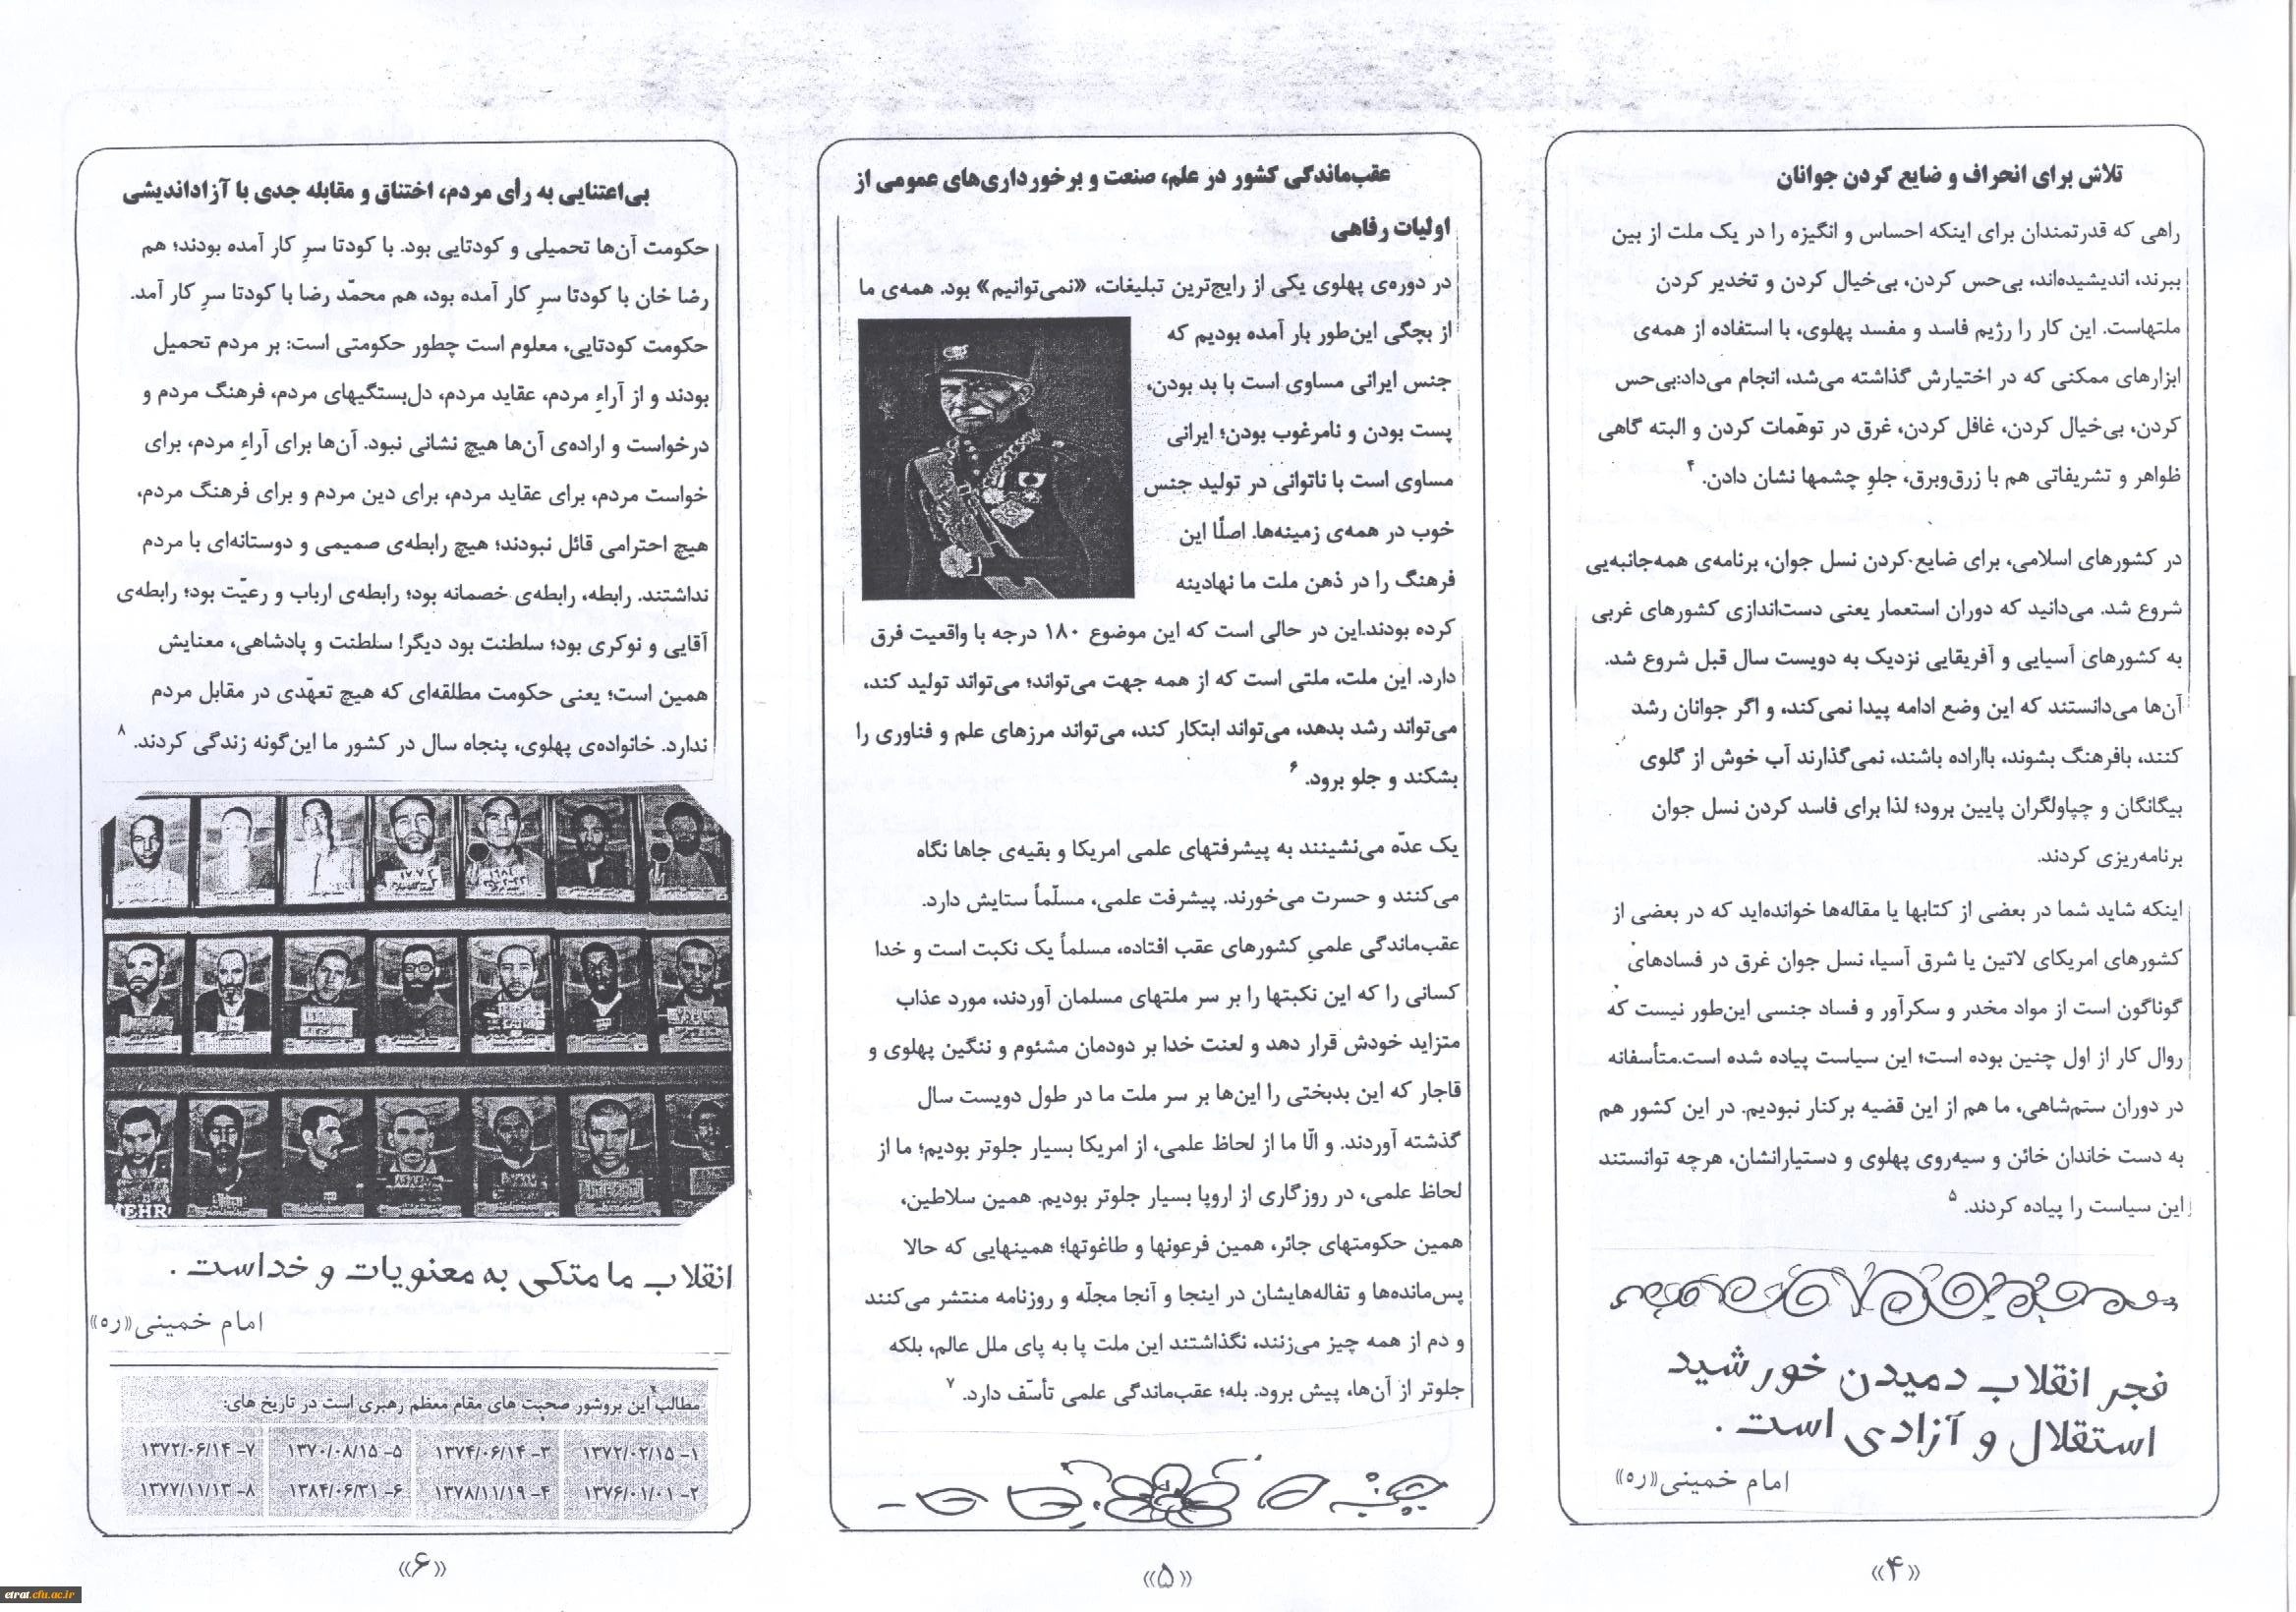 تلاش برای انحراف و ضایع کردن جوانان
راهی که قدرتمندان برای اینکه احساس و انگیزه را در یک ملت از بین
ببرند، اندیشیده‌اند، بی‌حس کردن، بی‌خیال کردن و تخدیر کردن
ملتهاست. این کار را رژیم فاسد و مفسد پهلوی، با استفاده از همه‌ی
ابزارهای ممکنی که در اختیارش گذاشته می‌شد، انجام می‌داد:بی‌حس
کردن، بی‌خیال کردن، غافل کردن، غرق در توهّمات کردن و البته گاهی
ظواهر و تشریفاتی هم با زرق‌وبرق، جلوِ چشمها نشان دادن. ۴
در کشورهای اسلامی، برای ضایع کردن نسل جوان، برنامه‌ی همه‌جانبه‌یی
شروع شد. می‌دانید که دوران استعمار یعنی دست‌اندازی کشورهای غربی
به کشورهای آسیایی و آفریقایی نزدیک به دویست سال قبل شروع شد.
آن‌ها می‌دانستند که این وضع ادامه پیدا نمی‌کند، و اگر جوانان رشد
کنند، بافرهنگ بشوند، بااراده باشند، نمی‌گذارند آب خوش از گلوی
بیگانگان و چپاولگران پایین برود؛ لذا برای فاسد کردن نسل جوان
برنامه‌ریزی کردند.
اینکه شاید شما در بعضی از کتابها یا مقاله‌ها خوانده‌اید که در بعضی از
کشورهای امریکای لاتین یا شرق آسیا، نسل جوان غرق در فسادهای
گوناگون است از مواد مخدر و سکرآور و فساد جنسی این‌طور نیست که
روال کار از اول چنین بوده است؛ این سیاست پیاده شده است.متأسفانه
در دوران ستم‌شاهی، ما هم از این قضیه برکنار نبودیم. در این کشور هم
به دست خاندان خائن و سیه‌روی پهلوی و دستیارانشان، هرچه توانستند
این سیاست را پیاده کردند. ۵
فجر انقلاب دمیدن خورشید
استقلال و آزادی است.
امام خمینی«ره»
«۴»
عقب‌ماندگی کشور در علم، صنعت و برخورداری‌های عمومی از
اولیات رفاهی
در دوره‌ی پهلوی یکی از رایج‌ترین تبلیغات، «نمی‌توانیم» بود. همه‌ی ما
از بچگی این‌طور بار آمده بودیم که
جنس ایرانی مساوی است با بد بودن،
پست بودن و نامرغوب بودن؛ ایرانی
مساوی است با ناتوانی در تولید جنس
خوب در همه‌ی زمینه‌ها. اصلًا این
فرهنگ را در ذهن ملت ما نهادینه
کرده بودند.این در حالی است که این موضوع ۱۸۰ درجه با واقعیت فرق
دارد. این ملت، ملتی است که از همه جهت می‌تواند؛ می‌تواند تولید کند،
می‌تواند رشد بدهد، می‌تواند ابتکار کند، می‌تواند مرزهای علم و فناوری را
بشکند و جلو برود. ۶
یک عدّه می‌نشینند به پیشرفتهای علمی امریکا و بقیه‌ی جاها نگاه
می‌کنند و حسرت می‌خورند. پیشرفت علمی، مسلّماً ستایش دارد.
عقب‌ماندگی علمیِ کشورهای عقب افتاده، مسلماً یک نکبت است و خدا
کسانی را که این نکبتها را بر سر ملتهای مسلمان آوردند، مورد عذاب
متزاید خودش قرار دهد و لعنت خدا بر دودمان مشئوم و ننگین پهلوی و
قاجار که این بدبختی را این‌ها بر سر ملت ما در طول دویست سال
گذشته آوردند. و الّا ما از لحاظ علمی، از امریکا بسیار جلوتر بودیم؛ ما از
لحاظ علمی، در روزگاری از اروپا بسیار جلوتر بودیم. همین سلاطین،
همین حکومتهای جائر، همین فرعونها و طاغوتها؛ همینهایی که حالا
پس‌مانده‌ها و تفاله‌هایشان در اینجا و آنجا مجلّه و روزنامه منتشر می‌کنند
و دم از همه چیز می‌زنند، نگذاشتند این ملت پا به پای ملل عالم، بلکه
جلوتر از آن‌ها، پیش برود. بله؛ عقب‌ماندگی علمی تأسّف دارد. ۷
«۵»
بی‌اعتنایی به رأی مردم، اختناق و مقابله جدی با آزاداندیشی
حکومت آن‌ها تحمیلی و کودتایی بود. با کودتا سرِ کار آمده بودند؛ هم
رضا خان با کودتا سرِ کار آمده بود، هم محمّد رضا با کودتا سرِ کار آمد.
حکومت کودتایی، معلوم است چطور حکومتی است: بر مردم تحمیل
بودند و از آراءِ مردم، عقاید مردم، دل‌بستگیهای مردم، فرهنگ مردم و
درخواست و اراده‌ی آن‌ها هیچ نشانی نبود. آن‌ها برای آراءِ مردم، برای
خواست مردم، برای عقاید مردم، برای دین مردم و برای فرهنگ مردم،
هیچ احترامی قائل نبودند؛ هیچ رابطه‌ی صمیمی و دوستانه‌ای با مردم
نداشتند. رابطه، رابطه‌ی خصمانه بود؛ رابطه‌ی ارباب و رعیّت بود؛ رابطه‌ی
آقایی و نوکری بود؛ سلطنت بود دیگر! سلطنت و پادشاهی، معنایش
همین است؛ یعنی حکومت مطلقه‌ای که هیچ تعهّدی در مقابل مردم
ندارد. خانواده‌ی پهلوی، پنجاه سال در کشور ما این‌گونه زندگی کردند. ۸
MEHR
انقلاب ما متکی به معنویات و خداست.
امام خمینی«ره»
مطالب این بروشور صحبت های مقام معظم رهبری است در تاریخ های:
۱- ۱۳۷۲/۰۲/۱۵ ۳- ۱۳۷۴/۰۶/۱۴ ۵- ۱۳۷۰/۰۸/۱۵ ۷- ۱۳۷۲/۰۶/۱۴
۲- ۱۳۷۶/۰۱/۰۱ ۴- ۱۳۷۸/۱۱/۱۹ ۶- ۱۳۸۴/۰۶/۳۱ ۸- ۱۳۷۷/۱۱/۱۳
«۶»
etrat.cfu.ac.ir